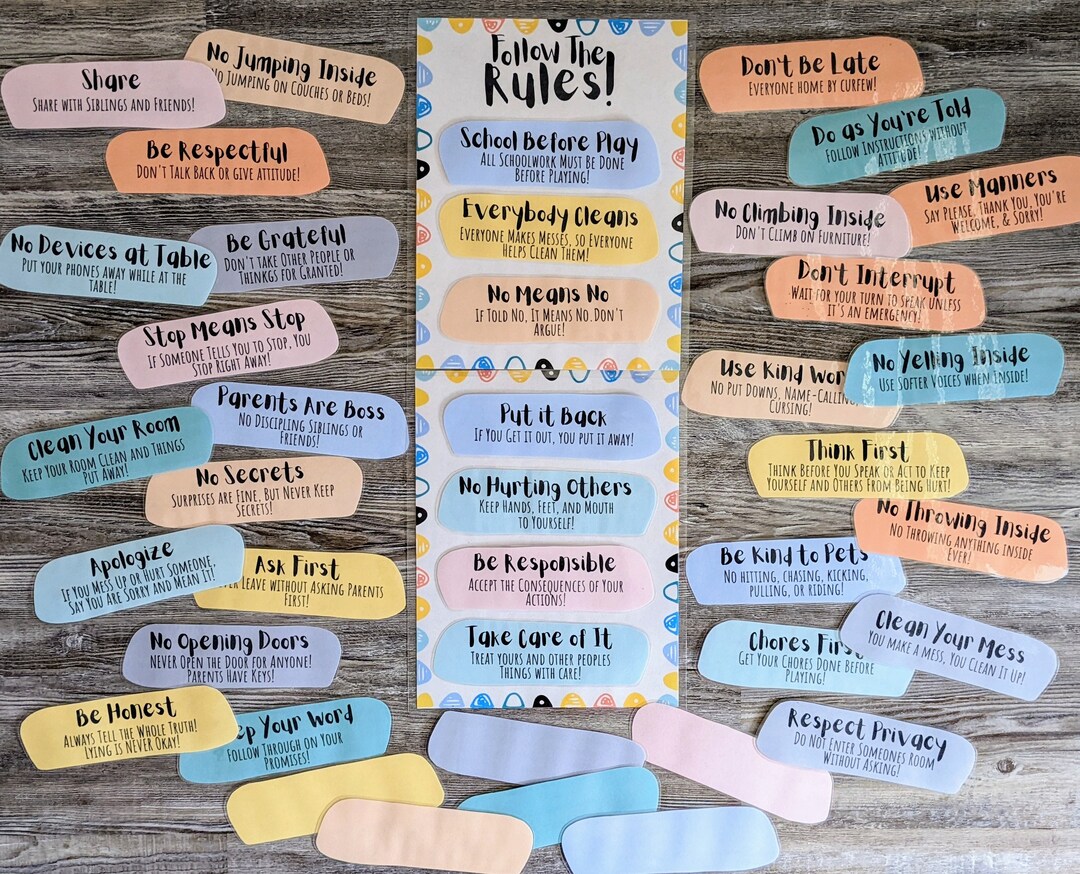 Follow The
Rules!
School Before Play
All Schoolwork Must Be Done
Before Playing!
Everybody Cleans
Everyone Makes Messes, so Everyone
Helps Clean Them!
No Means No
If Told No, It Means No. Don't
Argue!
Put it Back
If You Get it out, you put it away!
No Hurting Others
Keep Hands, Feet, and Mouth
to Yourself!
Be Responsible
Accept the Consequences of Your
Actions!
Take Care of It
Treat yours and other peoples
Things with care!
Share
Share with Siblings and Friends!
No Jumping Inside
No Jumping on Couches or Beds!
Be Respectful
Don't Talk Back or give attitude!
No Devices at Table
Put your phones away while at the
table!
Be Grateful
Don't take Other People or
Thinkgs for Granted!
Stop Means Stop
If Someone Tells You to Stop, You
Stop Right Away!
Parents Are Boss
No Discipling Siblings or
Friends!
Clean Your Room
Keep your Room Clean and Things
Put Away!
No Secrets
Surprises are Fine, But Never Keep
Secrets!
Apologize
If You Mess Up or Hurt Someone,
Say You Are Sorry and Mean it!
Ask First
Leave without Asking Parents
First!
No Opening Doors
Never Open the Door for Anyone!
Parents Have Keys!
Be Honest
Always Tell the Whole Truth!
Lying is Never Okay!
Your Word
Follow Through on Your
Promises!
Don't Be Late
Everyone Home by Curfew!
Do as You're Told
Follow Instructions without
Attitude!
Use Manners
Say Please, Thank You, You're
Welcome, & Sorry!
No Climbing Inside
Don't Climb on Furniture!
Don't Interrupt
Wait for your turn to speak unless
it's an emergency!
Use Kind
No Put Downs, Name-Calling,
Cursing!
No Yelling Inside
Use Softer Voices when Inside!
Think First
Think Before You Speak or Act to Keep
Yourself and Others From Being Hurt!
No Throwing Inside
No Throwing anything inside
Ever!
Be Kind to Pets
No hitting, chasing, kicking,
pulling, or riding!
Chores First
Get Your Chores Done Before
Playing!
Clean Your Mess
You make a Mess, You Clean it Up!
Respect Privacy
Do Not Enter Someones Room
Without Asking!